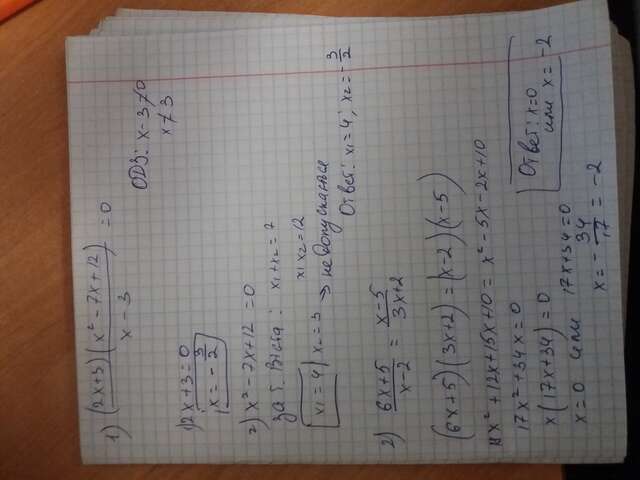 1) (2x+3)(x² - 7x + 12) / x - 3 = 0
ОДЗ: x - 3 ≠ 0
x ≠ 3
1) 2x + 3 = 0
x = - 3/2
2) x² - 7x + 12 = 0
за т. Вієта: x₁ + x₂ = 7
x₁ x₂ = 12
x₁ = 4 x₂ = 3 → не допускається
Ответ: x₁ = 4; x₂ = - 3/2
2) 6x+5 / x-2 = x-5 / 3x+2
(6x+5)(3x+2) = (x-2)(x-5)
18x² + 12x + 15x + 10 = x² - 5x - 2x + 10
17x² + 34x = 0
x(17x+34) = 0
x = 0 или 17x+34 = 0
x = - 34/17 = -2
Ответ: x=0
или x = -2